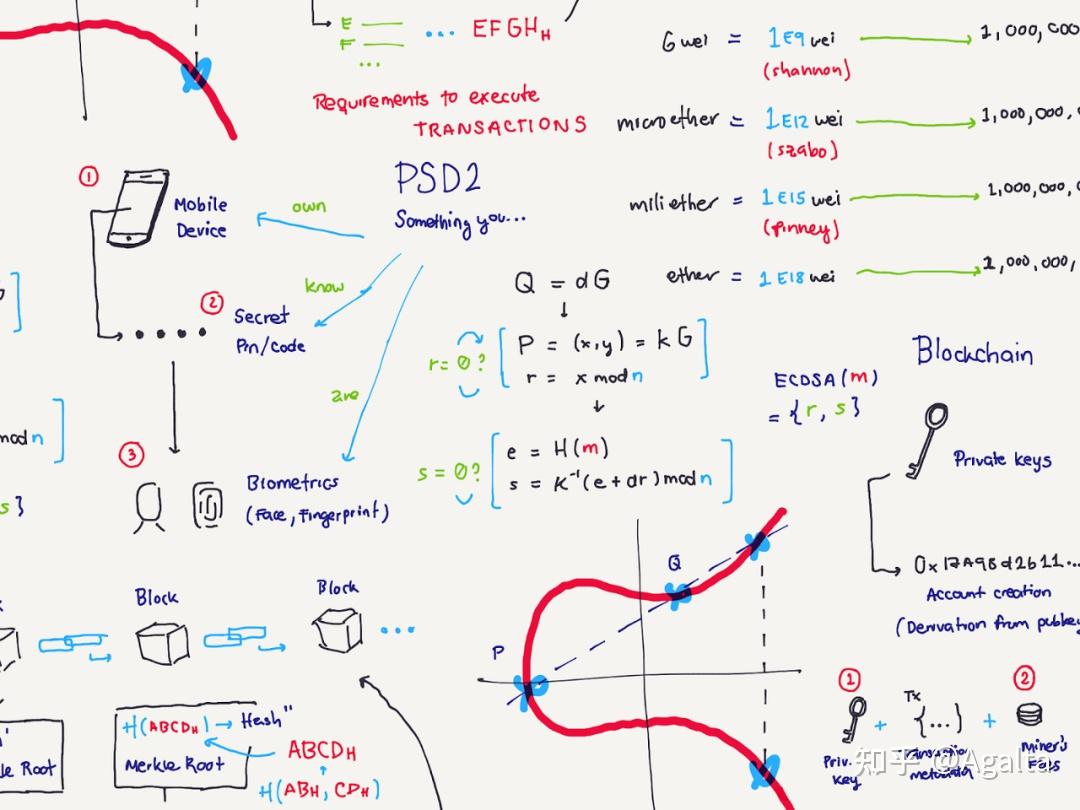 E
F
...
... EFGHH
Requirements to execute
TRANSACTIONS
Gwei = 1E9 wei
(shannon)
microether = 1E12 wei
(szabo)
1,000,000,
miliether = 1E15 wei
(finney)
1,000,000,
ether = 1E18 wei
1,000,000,
PSD2
Something you...
own
know
are
1
Mobile
Device
2
Secret
Pin/code
3
Biometrics
(Face, Fingerprint)
Q = dG
r = 0?
P = (x,y) = kG
r = x mod n
s = 0?
e = H(m)
s = K⁻¹(e + dr) mod n
ECDSA(m)
= {r, s}
Blockchain
Private keys
0x17A98d2611...
Account creation
(Derivation from pubkey
mod n
s}
Block
Block
...
H(ABCDH) → Hash"
Merkle Root
ABCDH
H(ABH, CDH)
Root
Q
P
1
Priv.
Key
+
Tx
{...}
+
2
Miner's
知乎 @Agalta